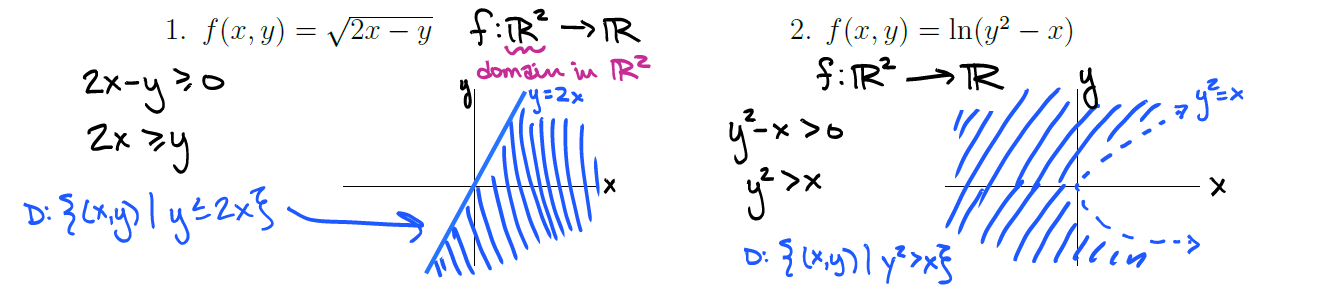 1. f(x, y) = √(2x − y)
f:ℝ² → ℝ
domain in ℝ²
2x-y ≥ 0
2x ≥ y
D: {(x,y) | y ≤ 2x}
y
y=2x
x
2. f(x, y) = ln(y² − x)
f:ℝ² → ℝ
y²-x > 0
y² > x
D: {(x,y) | y² > x}
y
y²=x
x